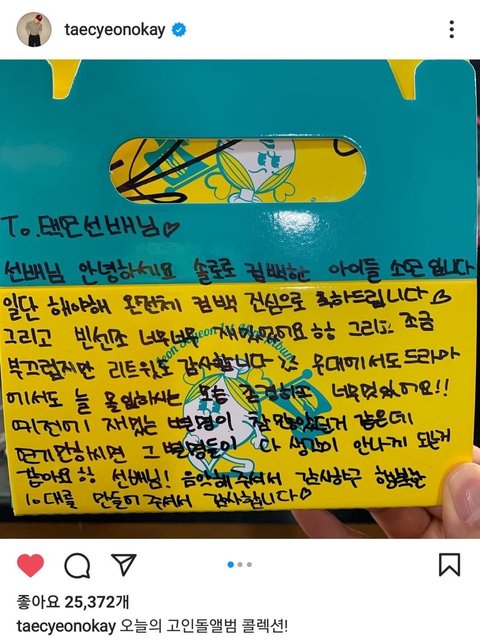 taecyeonokay
To. 택연선배님♡
선배님 안녕하세요 솔로로 컴백한 아이들 소연입니다
일단 해야해 완전체 컴백 진심으로 축하드립니다♡
그리고 빈센조 너무너무 재미있어요ㅎㅎ 그리고 조금
부끄럽지만 리트윗도 감사합니다☆ 무대에서도 드라마
에서도 늘 몰입하시는 모습 너무멋있어요!!
예전에 재밌는 별명이 많았던거 같은데
연기만하시면 그 별명들이 다 생각이 안나게 되는거
같아요ㅎㅎ 선배님! 음악해주셔서 감사하구 행복한
10대를 만들어주셔서 감사합니다♡
좋아요 25,372개
taecyeonokay 오늘의 고인돌앨범 콜렉션!